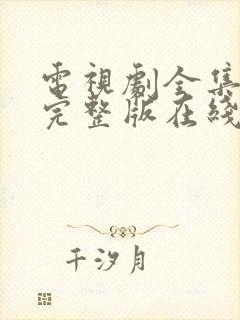 電視劇全集
完整版在綫
千汐月